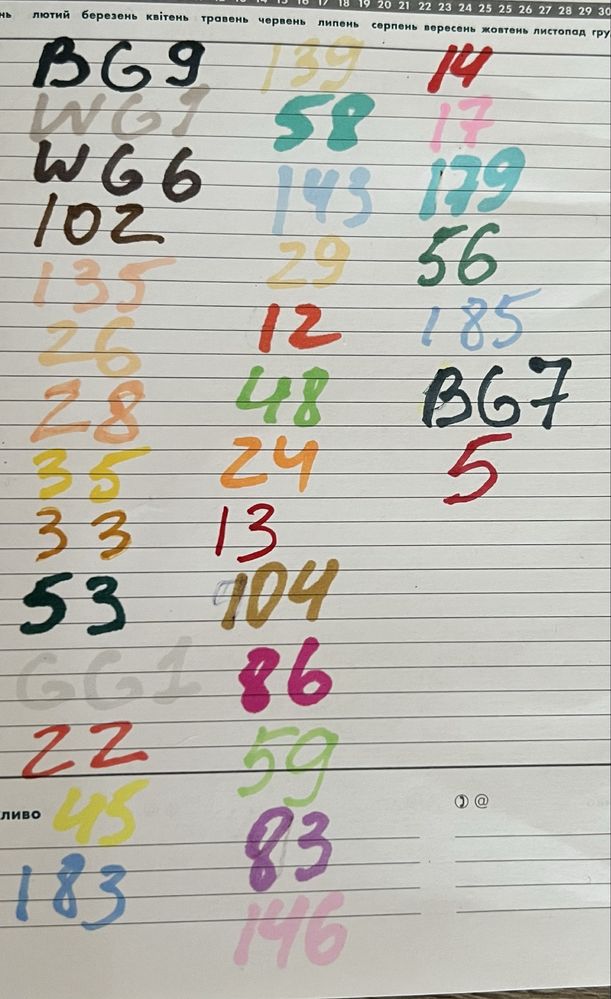 18 19 20 21 22 23 24 25 25 26 27 28 29 30
лютий березень квітень травень червень липень серпень вересень жовтень листопад гру
BG9
WG1
WG6
102
135
26
28
35
33
53
GG1
22
ливо
45
183
139
58
143
29
12
48
24
13
104
86
59
83
146
14
17
179
56
185
BG7
5
@